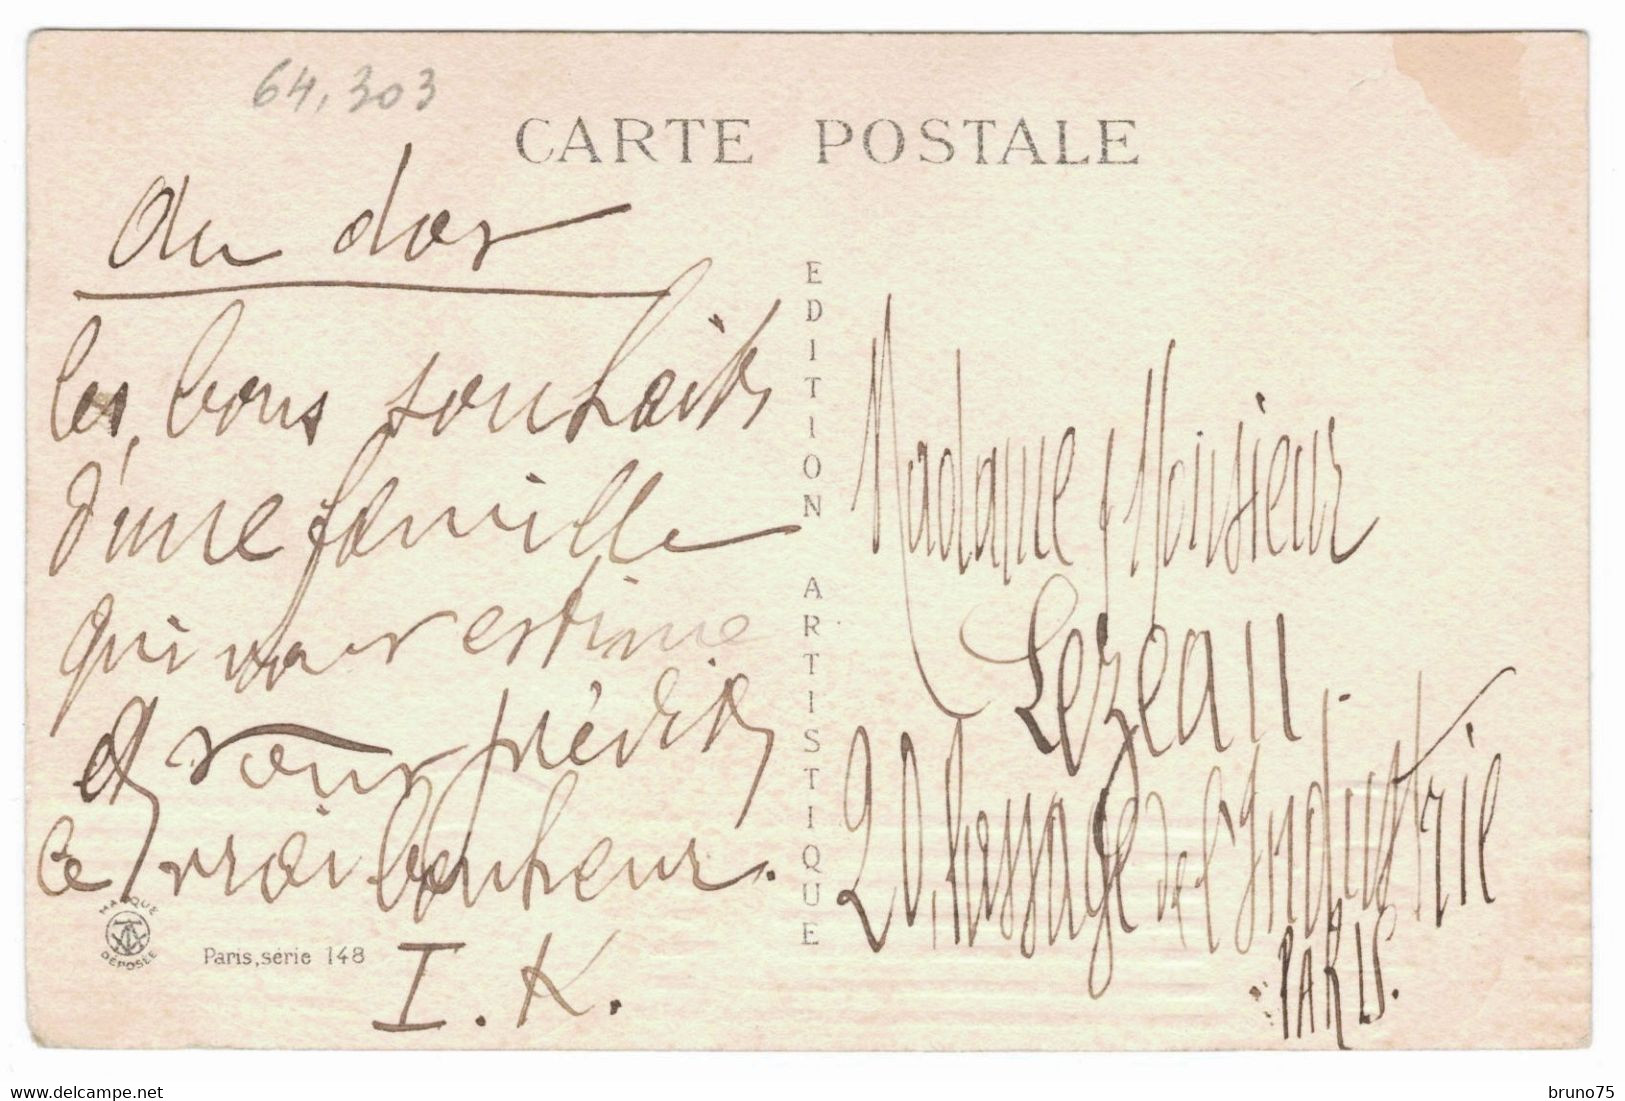 64,303
CARTE POSTALE
Au dos
les bons souhaits
d'une famille
qui vous estime
et vous prédit
le vrai bonheur.
I. K.
MARQUE
DÉPOSÉE
Paris, série 148
EDITION ARTISTIQUE
Madame & Monsieur
Lezeau
20, Passage de l'Industrie
PARIS.
https://www.delcampe.net
bruno75